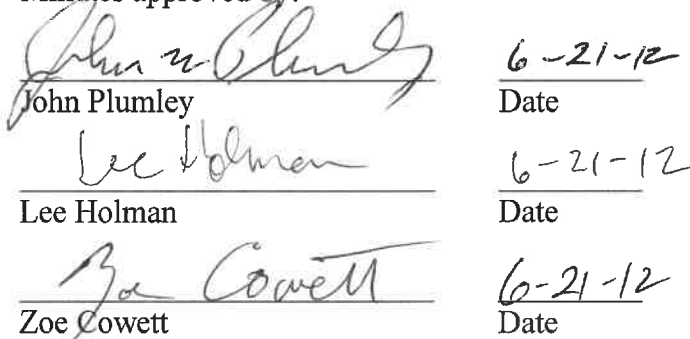 Minutes approved by:
John N Plumley 6-21-12
John Plumley Date
Lee Holman 6-21-12
Lee Holman Date
Zoe Cowett 6-21-12
Zoe Cowett Date